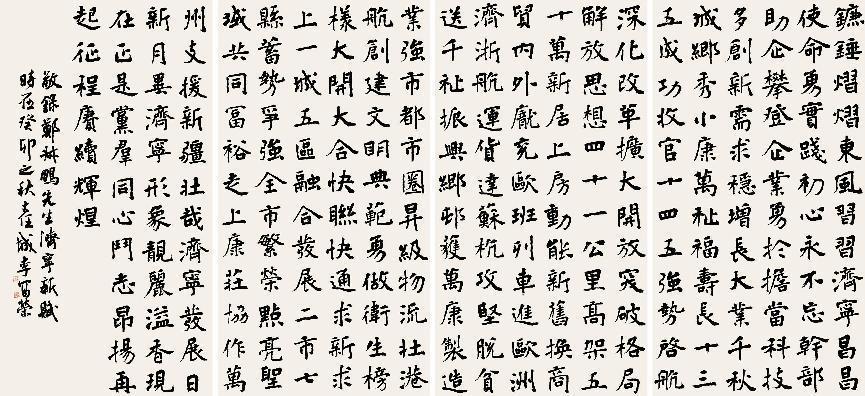 鐮錘熠熠東風習習濟寧昌昌
使命勇實踐初心永不忘幹部
助企攀登企業勇於擔當科技
多創新需求穩增長大業千秋
城鄉秀小康萬祉福壽長十三
五成功收官十四五強勢啓航
深化改革擴大開放突破格局
解放思想四十一公里高架五
十萬新居上房動能新舊換高
貿内外歐班列車進歐洲
濟浙航運貨達蘇杭攻堅脫貧
送千祉振興鄉邨護萬康製造
業強市都市圈昇級物流壯港
航創建文明典範勇做衛生榜
樣大開大合快聯快通求新求
上一城五區融合發展二市七
縣蓄勢爭強全市繁榮點亮聖
城共同富裕走上康莊協作萬
州支援新疆壯哉濟寧發展日
新月異濟寧形象靚麗溢香現
在正是黨群同心鬥志昂揚再
起征程賡續輝煌
敬錄鄭鵬先生濟寧新賦
時在癸卯之秋任城李富榮